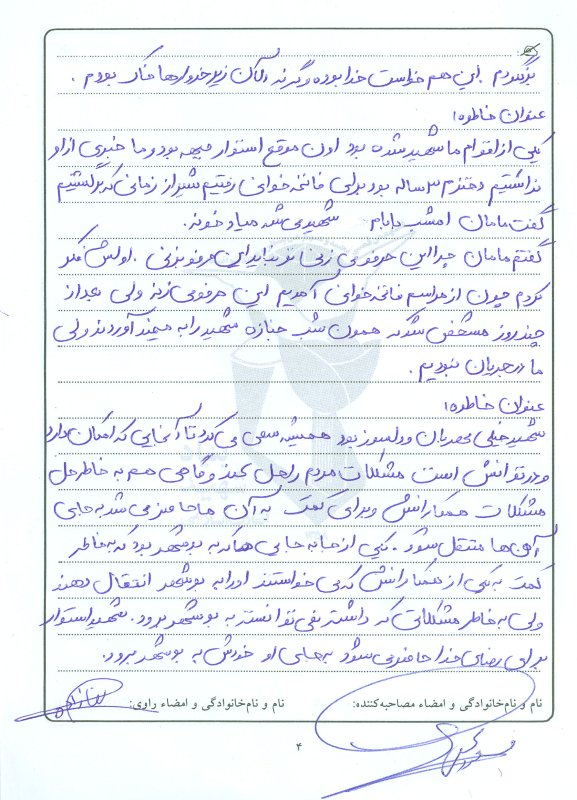 برگردم. این هم خواست خدا بوده وگرنه الآن زیر خروارها خاک بودم.
عنوان خاطره:
یکی از اقوام ما شهید شده بود اون موقع استوار جبهه بود و ما خبری از او
نداشتیم دخترم ۳ ساله بود برای فاتحه خوانی رفتیم شیراز زمانی که برگشتیم
گفت مامان امشب بابام شهید می‌شه میاد خونه.
گفتم مامان چرا این حرفو می زنی نباید این حرفو بزنی. اولش فکر
کردم چون از مراسم فاتحه خوانی آمدیم این حرفو می زند ولی بعد از
چند روز مشخص شد که همون شب جنازه شهید را به میمند آوردند ولی
ما در جریان نبودیم.
عنوان خاطره:
شهید خیلی مهربان و دلسوز بود همیشه سعی می کرد تا آنجایی که امکان دارد
و در توانش است مشکلات مردم را حل کند و گاهی هم به خاطر حل
مشکلات همکارانش و برای کمک به آن ها حاضر می شد به جای
آن ها منتقل شود. یکی از جابه جایی ها که به بوشهر بود که به خاطر
کمک به یکی از همکارانش که می خواستند او را به بوشهر انتقال دهند
ولی به خاطر مشکلاتی که داشته نمی توانسته به بوشهر برود. شهید استوار
برای رضای خدا حاضر می شود به جای او خودش به بوشهر برود.
نام و نام‌خانوادگی و امضاء مصاحبه‌کننده: نام و نام‌خانوادگی و امضاء راوی:
۴